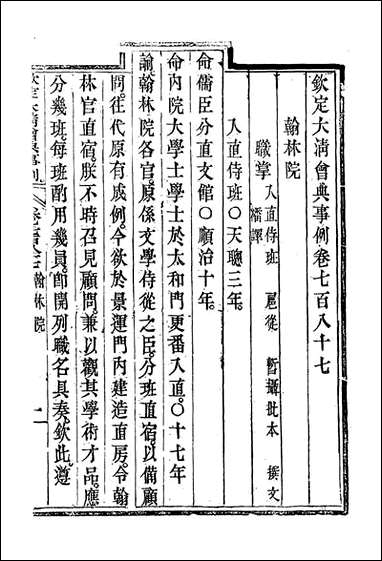 欽定大清會典事例卷七百八十七
翰林院
職掌 入直侍班 扈從 暫攝批本 撰文
繙譯
入直侍班○天聰三年。
命儒臣分直文館○順治十年。
命內院大學士學士於太和門更番入直。○十七年
諭。翰林院各官。原係文學侍從之臣。分班直宿。以備顧
問。往代原有成例。今欲於景運門內建造直房。令翰
林官直宿。朕不時召見顧問。兼以觀其學術才品。應
分幾班每班酌用幾員。卽開列職名具奏。欽此。遵
翰林院